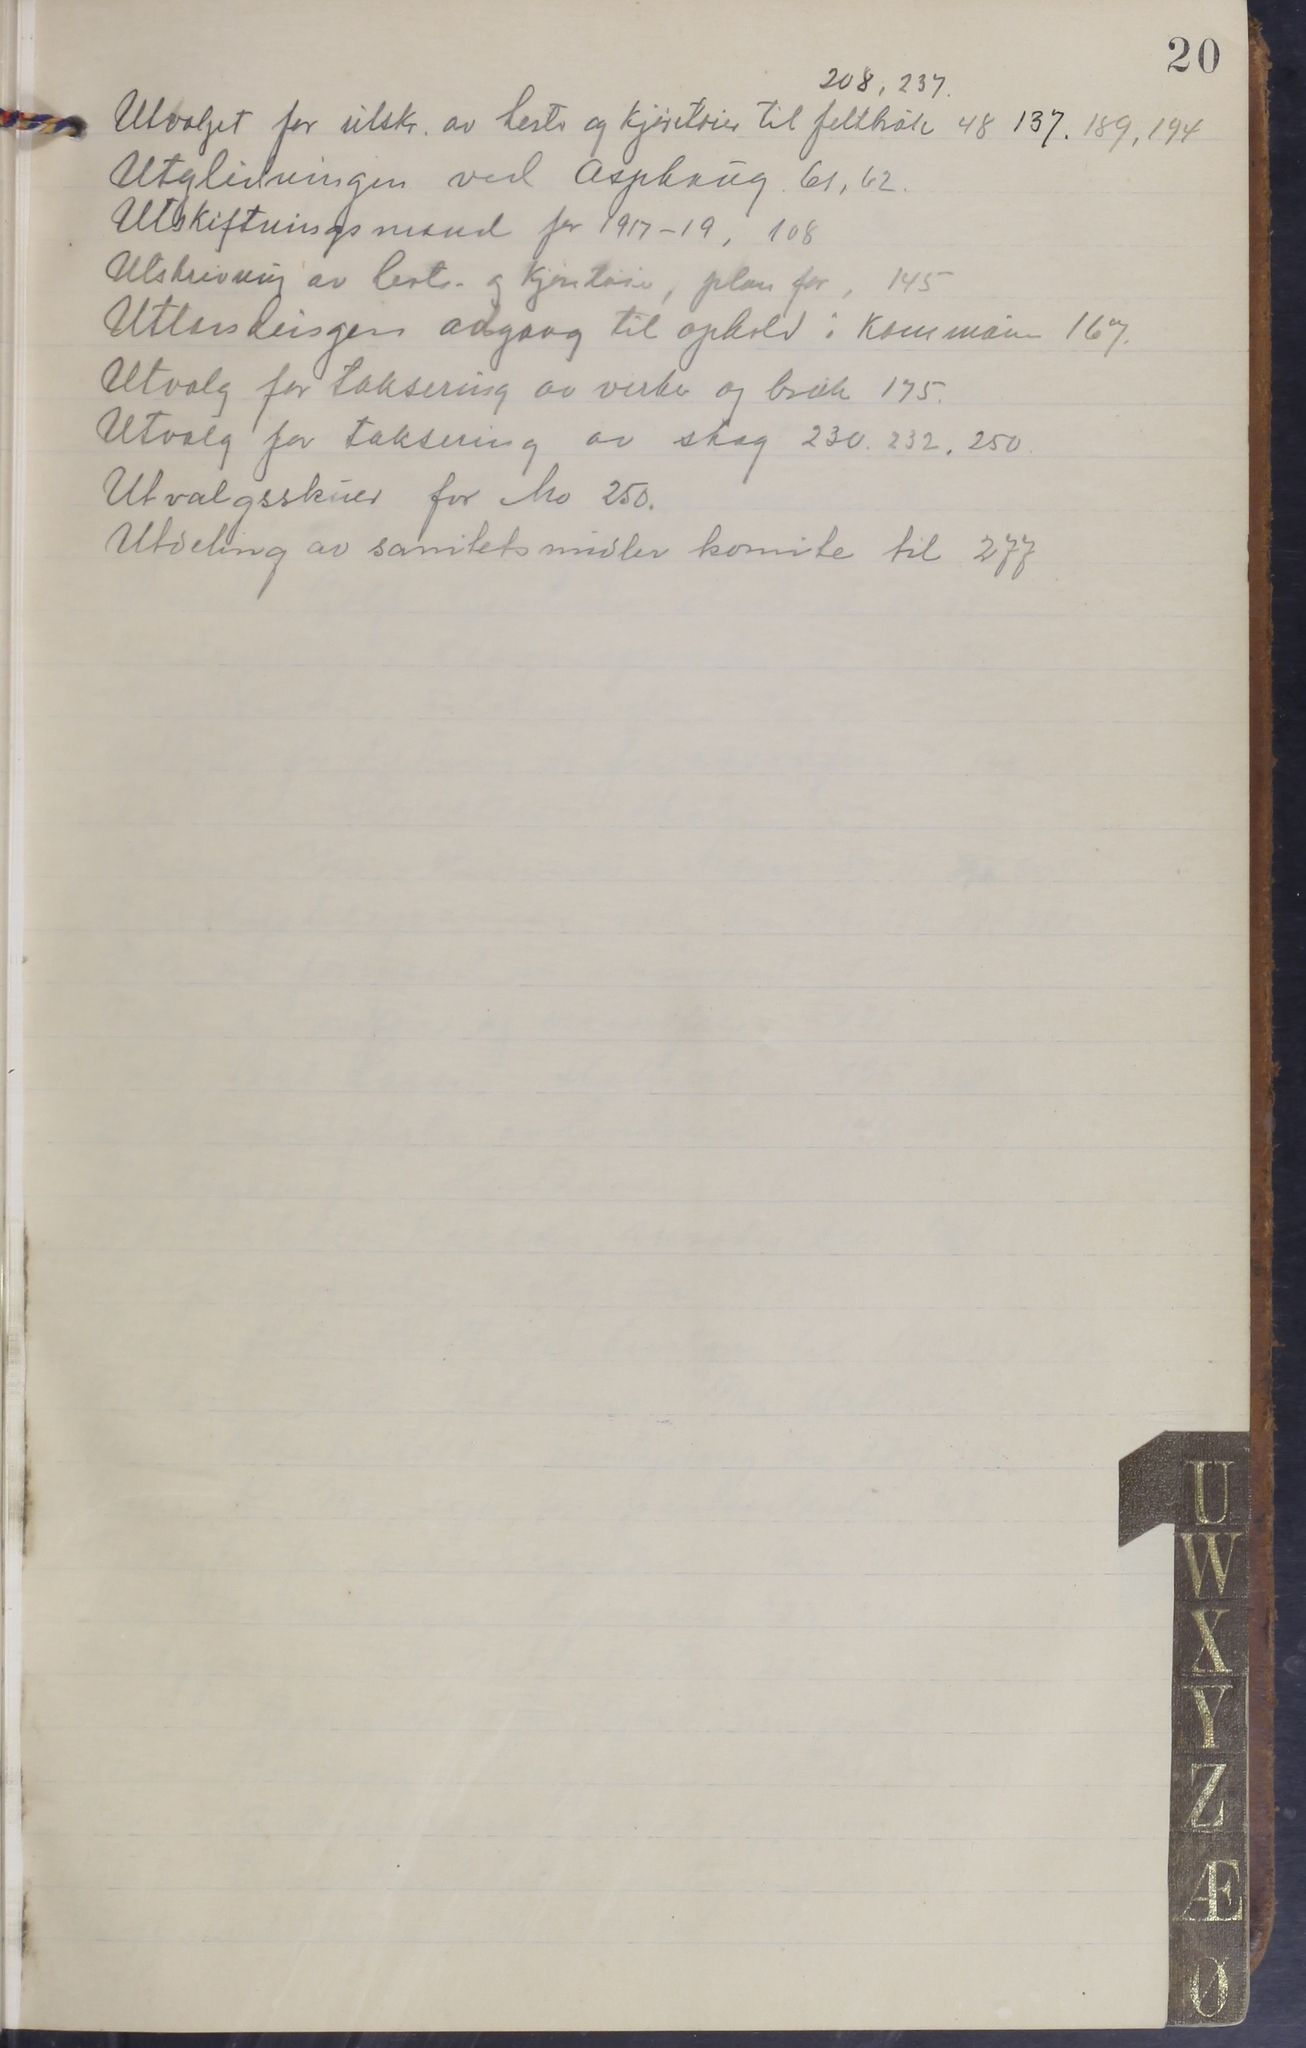 20
208, 237.
Utvalget for utskr. av heste og kjøretøier til feltbruk 48 137. 189, 194
Utglidningen ved Asphaug 61, 62.
Utskiftningsmænd for 1917-19, 108
Utskrivning av heste- og kjøretøier, plan for, 145
Utlændingers adgang til ophold i kommunen 167.
Utvalg for taksering av verker og bruk 175.
Utvalg for taksering av skog 230. 232. 250
Utvalgsskuer for Mo 250.
Utdeling av sanitetsmidler komite til 277
U
W
X
Y
Z
Æ
Ø